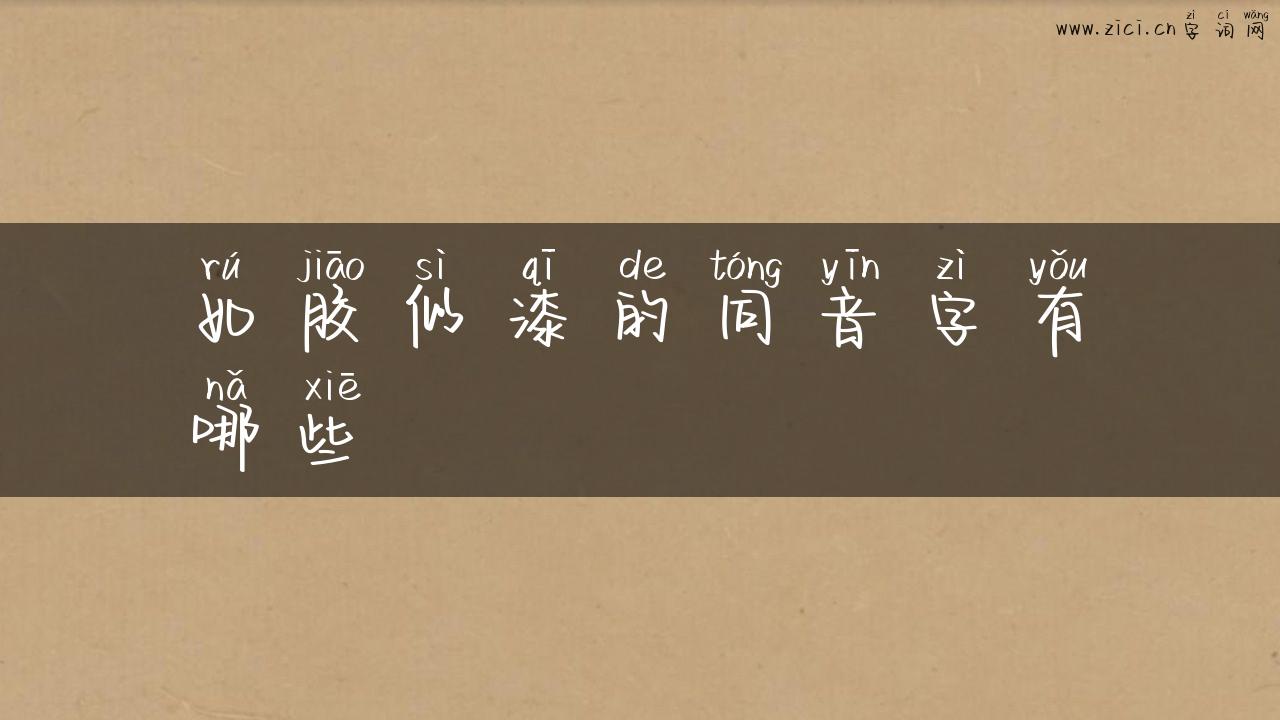 zì cí wǎng
www.zīcī.cn 字 词 网
rú jiāo sì qī de tóng yīn zì yǒu
如 胶 似 漆 的 同 音 字 有
nǎ xiē
哪 些